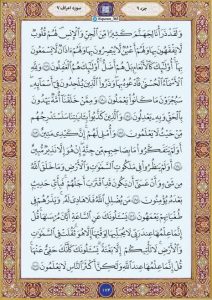 جزء ۹
سوره اعراف ۷
وَلَقَدْ ذَرَأْنَا لِجَهَنَّمَ كَثِيرًا مِنَ الْجِنِّ وَالْإِنْسِ لَهُمْ قُلُوبٌ
لَا يَفْقَهُونَ بِهَا وَلَهُمْ أَعْيُنٌ لَا يُبْصِرُونَ بِهَا وَلَهُمْ آذَانٌ لَا يَسْمَعُونَ
بِهَا أُولَٰئِكَ كَالْأَنْعَامِ بَلْ هُمْ أَضَلُّ أُولَٰئِكَ هُمُ الْغَافِلُونَ ۝ وَلِلَّهِ
الْأَسْمَاءُ الْحُسْنَىٰ فَادْعُوهُ بِهَا وَذَرُوا الَّذِينَ يُلْحِدُونَ فِي أَسْمَائِهِ
سَيُجْزَوْنَ مَا كَانُوا يَعْمَلُونَ ۝ وَمِمَّنْ خَلَقْنَا أُمَّةٌ يَهْدُونَ
بِالْحَقِّ وَبِهِ يَعْدِلُونَ ۝ وَالَّذِينَ كَذَّبُوا بِآيَاتِنَا سَنَسْتَدْرِجُهُمْ
مِنْ حَيْثُ لَا يَعْلَمُونَ ۝ وَأُمْلِي لَهُمْ إِنَّ كَيْدِي مَتِينٌ ۝
أَوَلَمْ يَتَفَكَّرُوا مَا بِصَاحِبِهِمْ مِنْ جِنَّةٍ إِنْ هُوَ إِلَّا نَذِيرٌ مُبِينٌ
۝ أَوَلَمْ يَنْظُرُوا فِي مَلَكُوتِ السَّمَاوَاتِ وَالْأَرْضِ وَمَا خَلَقَ اللَّهُ
مِنْ شَيْءٍ وَأَنْ عَسَىٰ أَنْ يَكُونَ قَدِ اقْتَرَبَ أَجَلُهُمْ فَبِأَيِّ حَدِيثٍ
بَعْدَهُ يُؤْمِنُونَ ۝ مَنْ يُضْلِلِ اللَّهُ فَلَا هَادِيَ لَهُ وَيَذَرُهُمْ فِي
طُغْيَانِهِمْ يَعْمَهُونَ ۝ يَسْأَلُونَكَ عَنِ السَّاعَةِ أَيَّانَ مُرْسَاهَا قُلْ
إِنَّمَا عِلْمُهَا عِنْدَ رَبِّي لَا يُجَلِّيهَا لِوَقْتِهَا إِلَّا هُوَ ثَقُلَتْ فِي السَّمَاوَاتِ
وَالْأَرْضِ لَا تَأْتِيكُمْ إِلَّا بَغْتَةً يَسْأَلُونَكَ كَأَنَّكَ حَفِيٌّ عَنْهَا
قُلْ إِنَّمَا عِلْمُهَا عِنْدَ اللَّهِ وَلَٰكِنَّ أَكْثَرَ النَّاسِ لَا يَعْلَمُونَ ۝